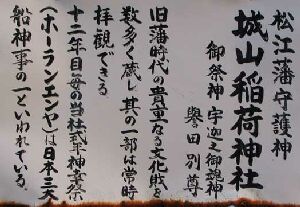 松江藩守護神
城山稲荷神社
御祭神 宇迦之御魂神
誉田別尊
旧藩時代の貴重なる文化財を
数多く蔵し其の一部は常時
拝観できる
十二年目毎の当社式年神幸祭
(ホーランエンヤ)は日本三大
船神事の一といわれている。